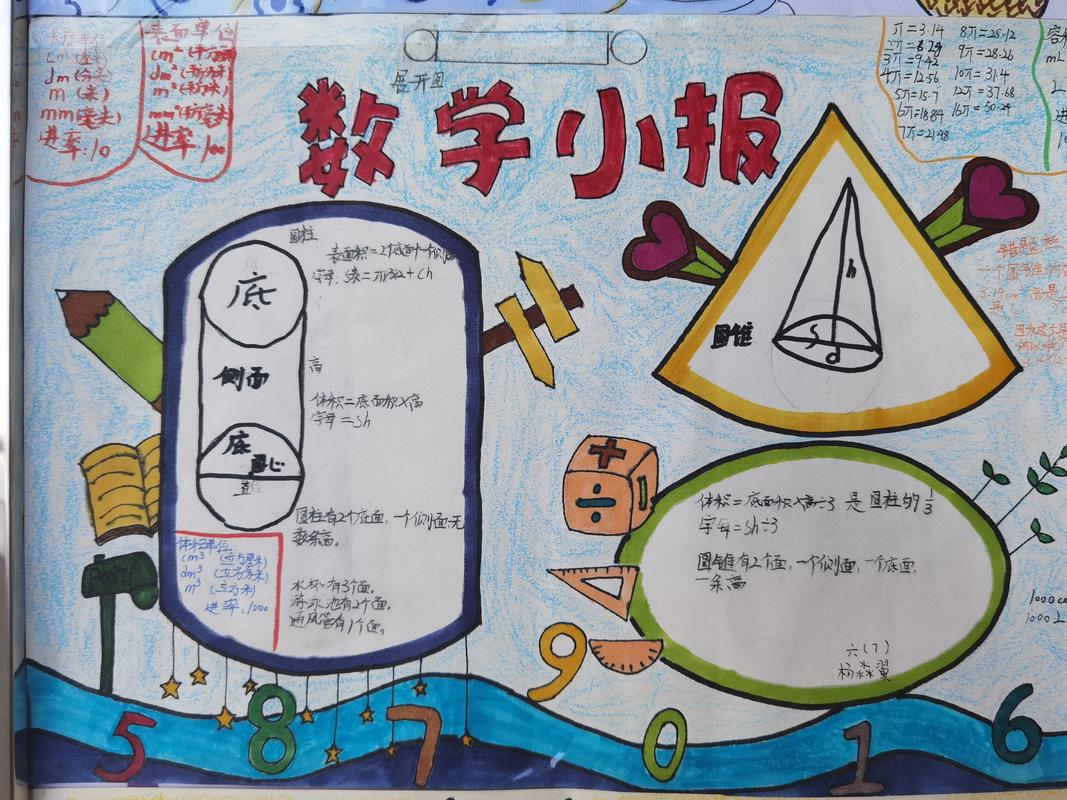 长度单位
cm(厘米)
dm(分米)
m(米)
mm(毫米)
进率:10
表面单位
cm²(平方厘米)
dm²(平方分米)
m²(平方米)
mm²(平方毫米)
进率:100
展开图
数学小报
π=3.14 8π=25.12
2π=6.28 9π=28.26
3π=9.42 10π=31.4
4π=12.56 12π=37.68
5π=15.7 16π=50.24
6π=18.84
7π=21.98
容
mL
L
进
10
圆柱
表面积=2个底面+一个侧面
字母:S表=πr²×2+Ch
底
侧面
高
体积=底面积×高
字母=Sh
底
圆心
直径
圆柱有2个底面,一个侧面,无
数条高。
体积单位
cm³(立方厘米)
dm³(立方分米)
m³(立方米)
进率:1000
水杯有3个面。
游泳池有2个面。
通风管有1个面。
圆锥
h
S
d
错题栏
一个圆锥的
高是
因为
所以
体积=底面积×高÷3 是圆柱的1/3
字母=Sh÷3
圆锥有2个面,一个侧面,一个底面,
一条高
六(7)
1000
1000L
5 8 7 9 0 1 6